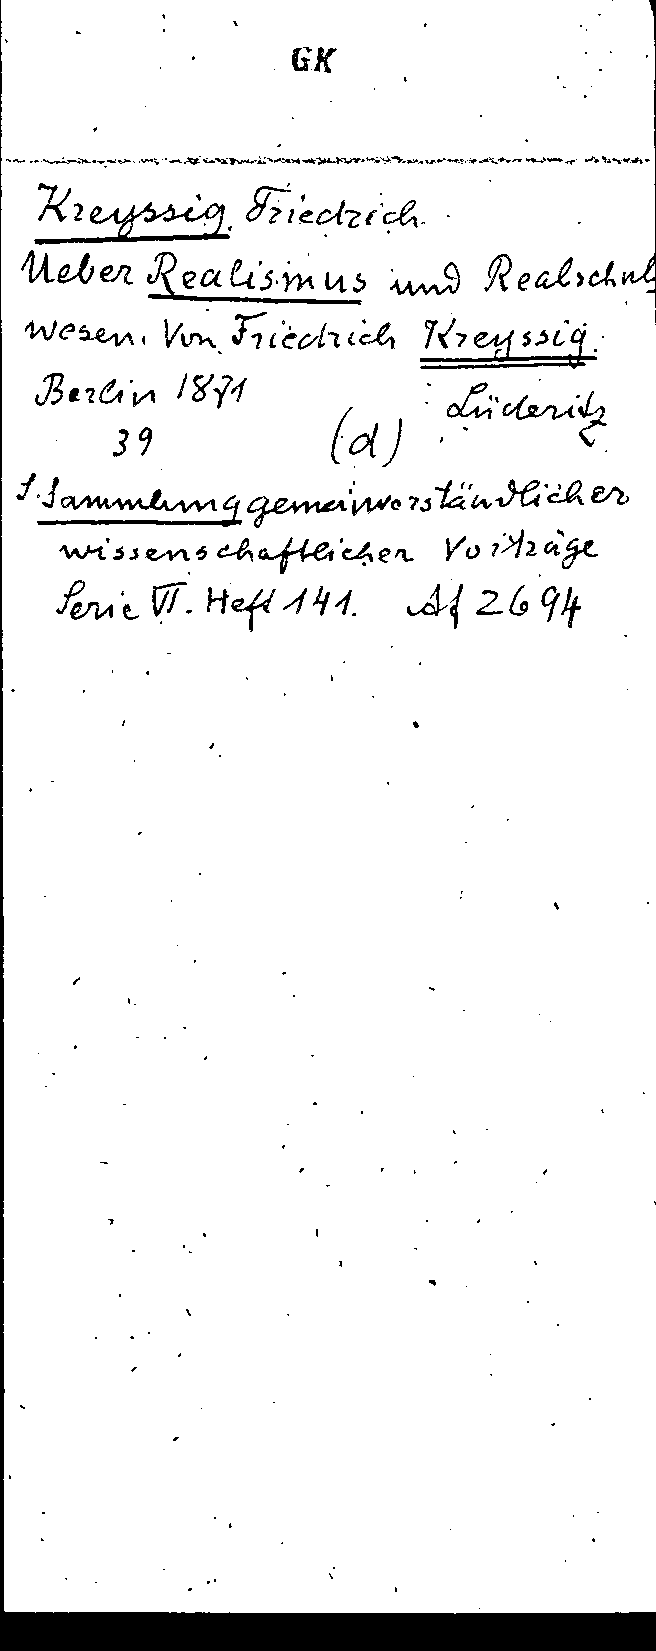 GK
Kreyssig, Friedrich.
Ueber Realismus und Realschul
wesen. Von Friedrich Kreyssig.
Berlin 1871 Lüderitz
39 (d)
S. Sammlung gemeinverständlicher
wissenschaftlicher Vorträge
Serie VI. Heft 141. Af 2694